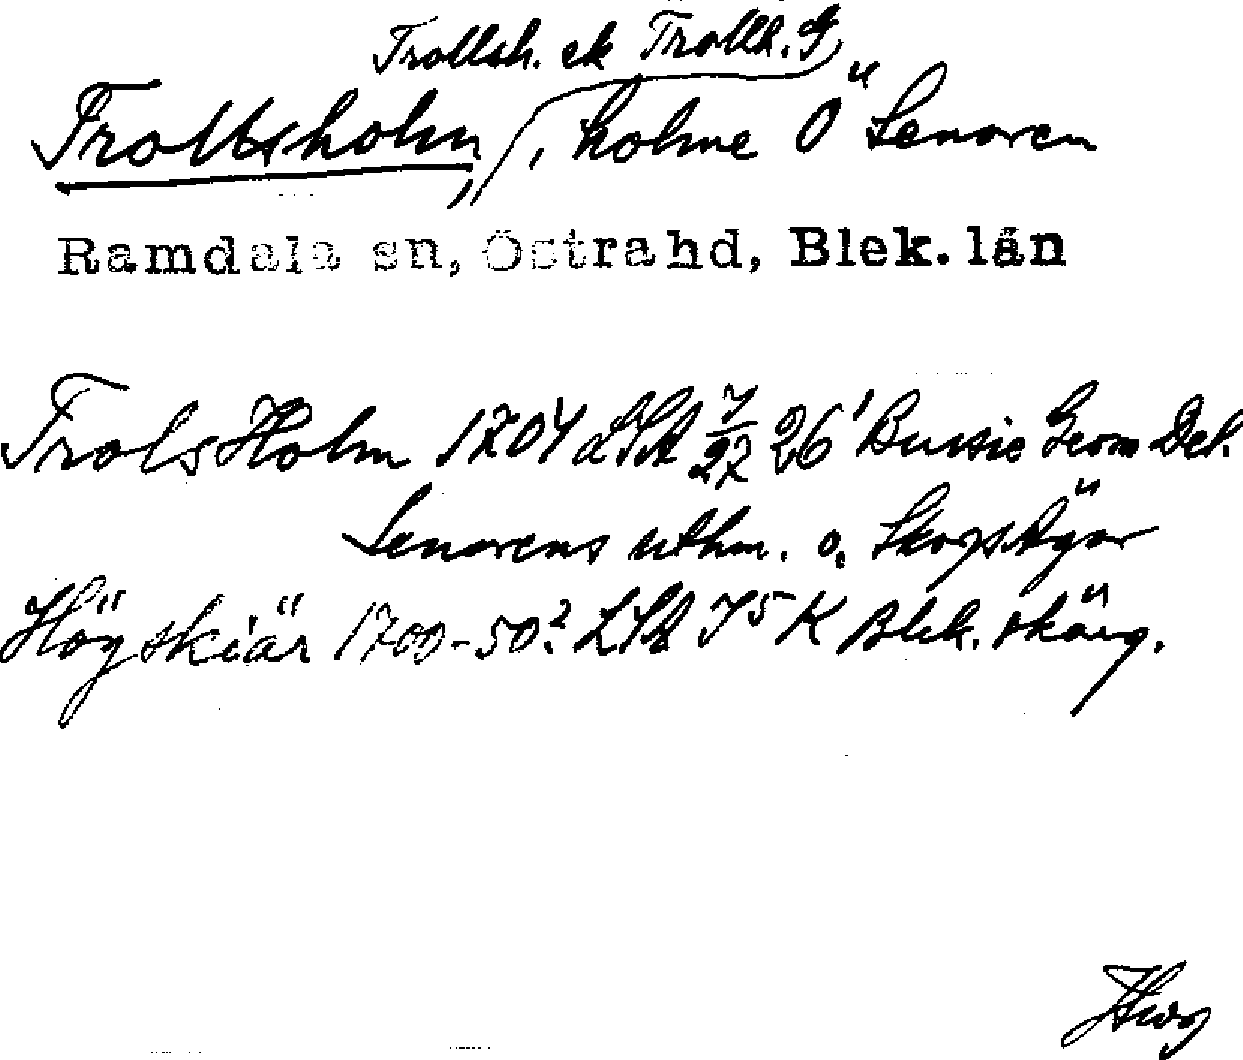 Trollsh. ek Trolls. G
Trollsholm, holme Ö Senoren
Ramdala sn, Östra hd, Blek. län
Trols Holm 1704 LSA 7/27 26' Geom Del.
Senorens uthm. o. Skogstägor
Högskiär 1700-50? LSA J5 K Blek. skärg.